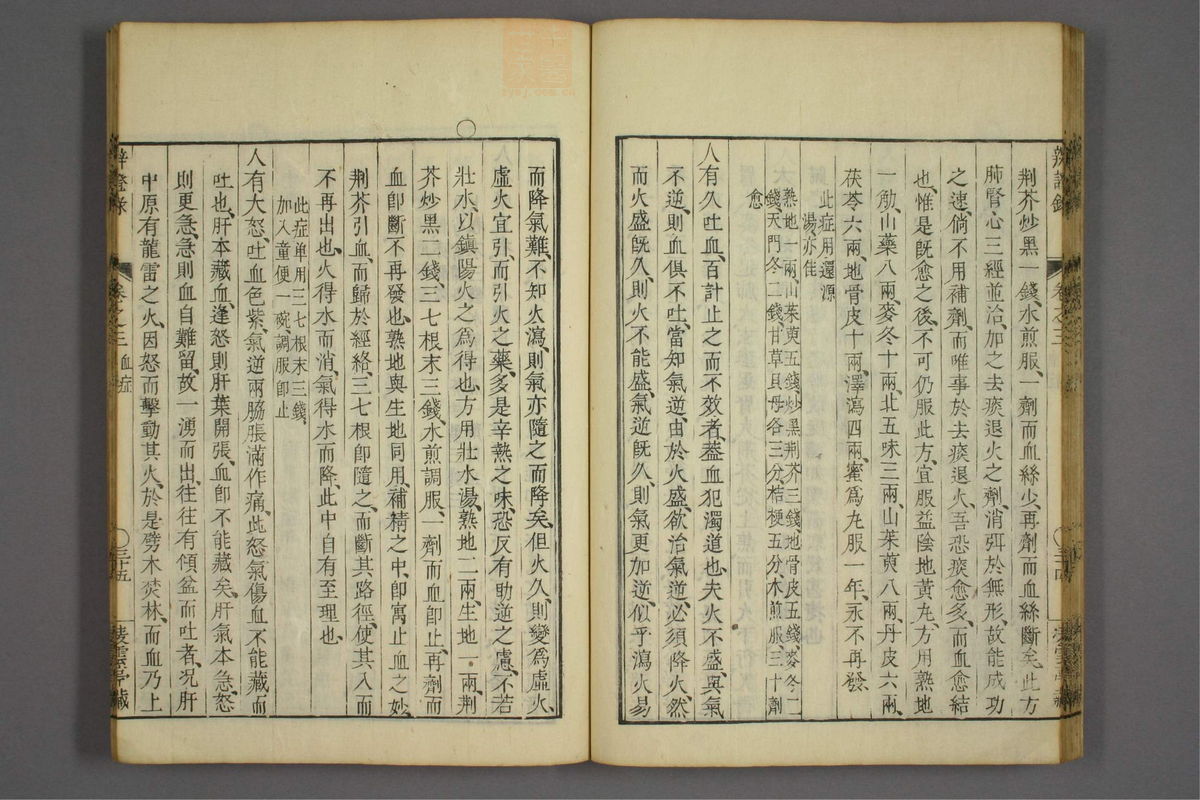 荆芥炒黑一錢、水煎服、一劑而血絲少、再劑而血絲斷矣、此方
肺腎心三經並治、加之去痰退火之劑、消弭於無形、故能成功
之速、倘不用補劑、而唯事於去痰退火、吾恐痰愈多、而血愈結
也、惟是旣愈之後、不可仍服此方、宜服益陰地黃丸、方用熟地
一觔、山藥八兩、麥冬十兩、北五味三兩、山茱萸八兩、丹皮六兩、
茯苓六兩、地骨皮十兩、澤瀉四兩、蜜爲丸、服一年、永不再發、
此症用還源
湯亦佳
熟地一兩、山茱萸五錢、炒黑荆芥三錢、地骨皮五錢、麥冬二
錢、天門冬二錢、甘草貝母各三分、桔梗五分、水煎服、三十劑
愈
人有久吐血、百計止之而不效者、蓋血犯濁道也、夫火不盛、與氣
不逆、則血俱不吐、當知氣逆、由於火盛、欲治氣逆、必須降火、然
而火盛旣久、則火不能盛、氣逆旣久、則氣更加逆、似乎瀉火易
辨證錄
卷之三
三十四
而降氣難、不知火瀉、則氣亦隨之而降矣、但火久則變爲虛火、
虛火宜引、而引火之藥、多是辛熱之味、恐反有助逆之慮、不若
○
壯水、以鎮陽火之爲得也、方用壯水湯、熟地二兩、生地一兩、荆
芥炒黑二錢、三七根末三錢、水煎調服、一劑而血卽止、再劑而
血卽斷不再發也、熟地與生地同用、補精之中、卽寓止血之妙、
荆芥引血、而歸於經絡、三七根卽隨之、而斷其路徑、使其入而
不再出也、火得水而消、氣得水而降、此中自有至理也、
此症單用三七根末三錢、
加入童便一碗、調服卽止
人有大怒吐血、色紫氣逆、兩脇脹滿作痛、此怒氣傷血、不能藏而
吐也、肝本藏血、逢怒則肝葉開張、血卽不能藏矣、肝氣本急、怒
則更急、急則血自難留、故一湧而出、往往有傾盆而吐者、况肝
中原有龍雷之火、因怒而擊動其火、於是劈木焚林、而血乃上
辨證錄
卷之三 血症
三十五